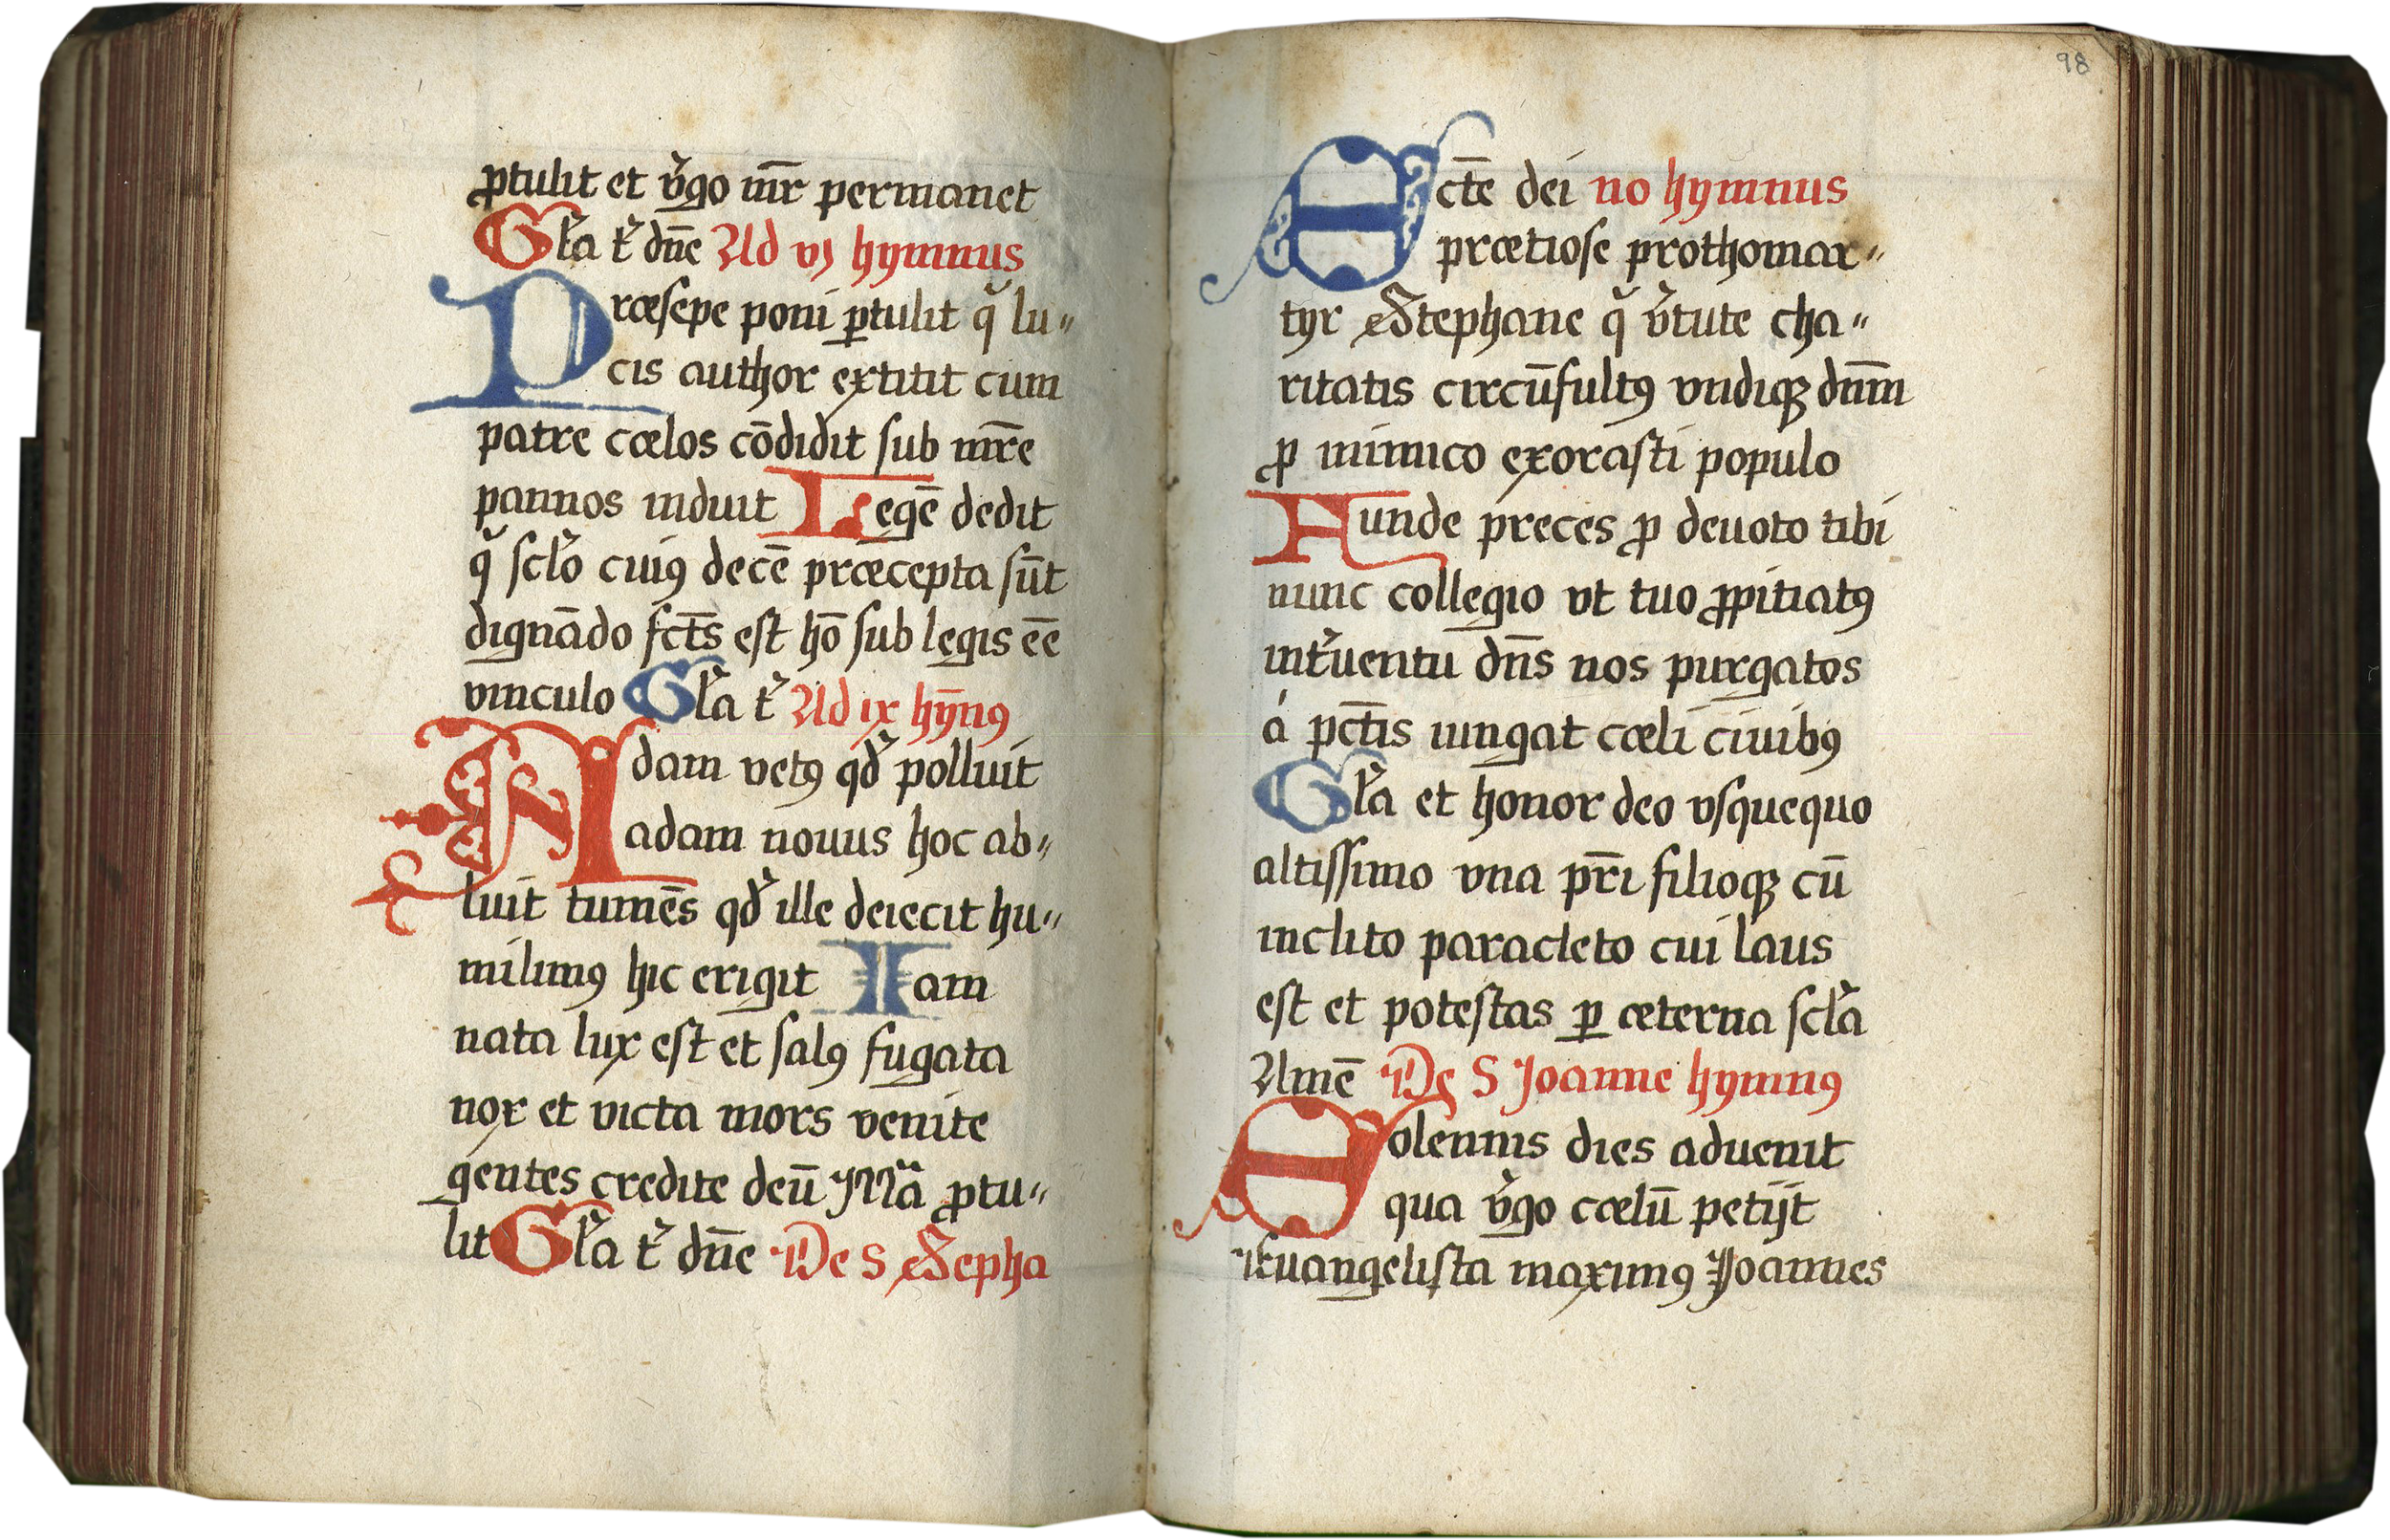 ꝓtulit et v̓go mr̄ permanet
Gl̓a t̓ dn̄e Ad vj hymnus
Præsepe poni ꝑtulit q̓ lu〃
cis author extitit cum
patre cœlos cōdidit sub mr̄e
pannos induit Legē dedit
q̓ scl̓o cuiꝯ decē præcepta sūt
dignādo fct̄s est hō sub legis eē
vinculo Gl̓a t̓ Ad ix hȳnꝯ
Adam vetꝯ qd̓ polluit
adam nouus hoc ab〃
luit tumēs qd̓ ille deiecit hu〃
milimꝯ hic erigit Iam
nata lux est et salꝯ fugata
nox et victa mors venite
gentes credite deū Mr̄a ꝓtu〃
lit Gl̓a t̓ dn̄e De S Stepha
98
Sct̄e dei no hymnus
prætiose prothomar〃
tyr Stephane q̓ v̓tute cha〃
ritatis circūfultꝯ vndiqꝫ dnm̄
ꝓ inimico exorasti populo
Funde preces ꝓ deuoto tibi
nunc collegio vt tuo ꝓpitiatꝯ
int̓uentu dn̄s nos purgatos
á pct̄is iungat cœli ciuibꝯ
Gl̓a et honor deo vsquequo
altissimo vna pr̄i filioqꝫ cū
inclito paracleto cui laus
est et potestas ꝑ æterna scl̓a
Amē De S Joanne hymnꝯ
Solennis dies aduenit
qua v̓go cœlū petijt
Euangelista maximꝯ Joannes